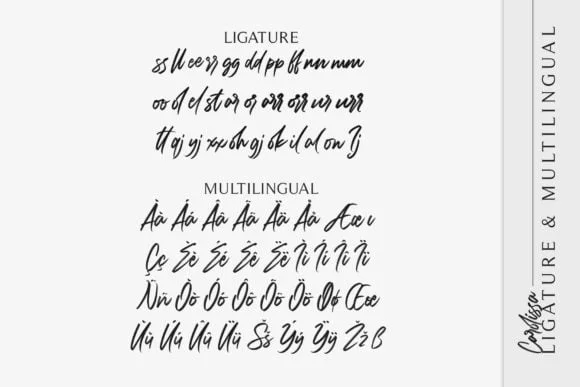 LIGATURE
ss ll ee rr gg dd pp ff nn mm
oo ol el st ar or arr orr ur urr
tt qj yj xx oh gj ok il al on Ij
MULTILINGUAL
Àà Áá Ââ Ãã Ää Åå Ææ ı
Çç Èè Éé Êê Ëë Ìì Íí Îî Ïï
Ññ Òò Óó Ôô Õõ Öö Øø Œœ
Ùù Úú Ûû Üü Šš Ýý Ÿÿ Žž ß
Cardissa
LIGATURE & MULTILINGUAL